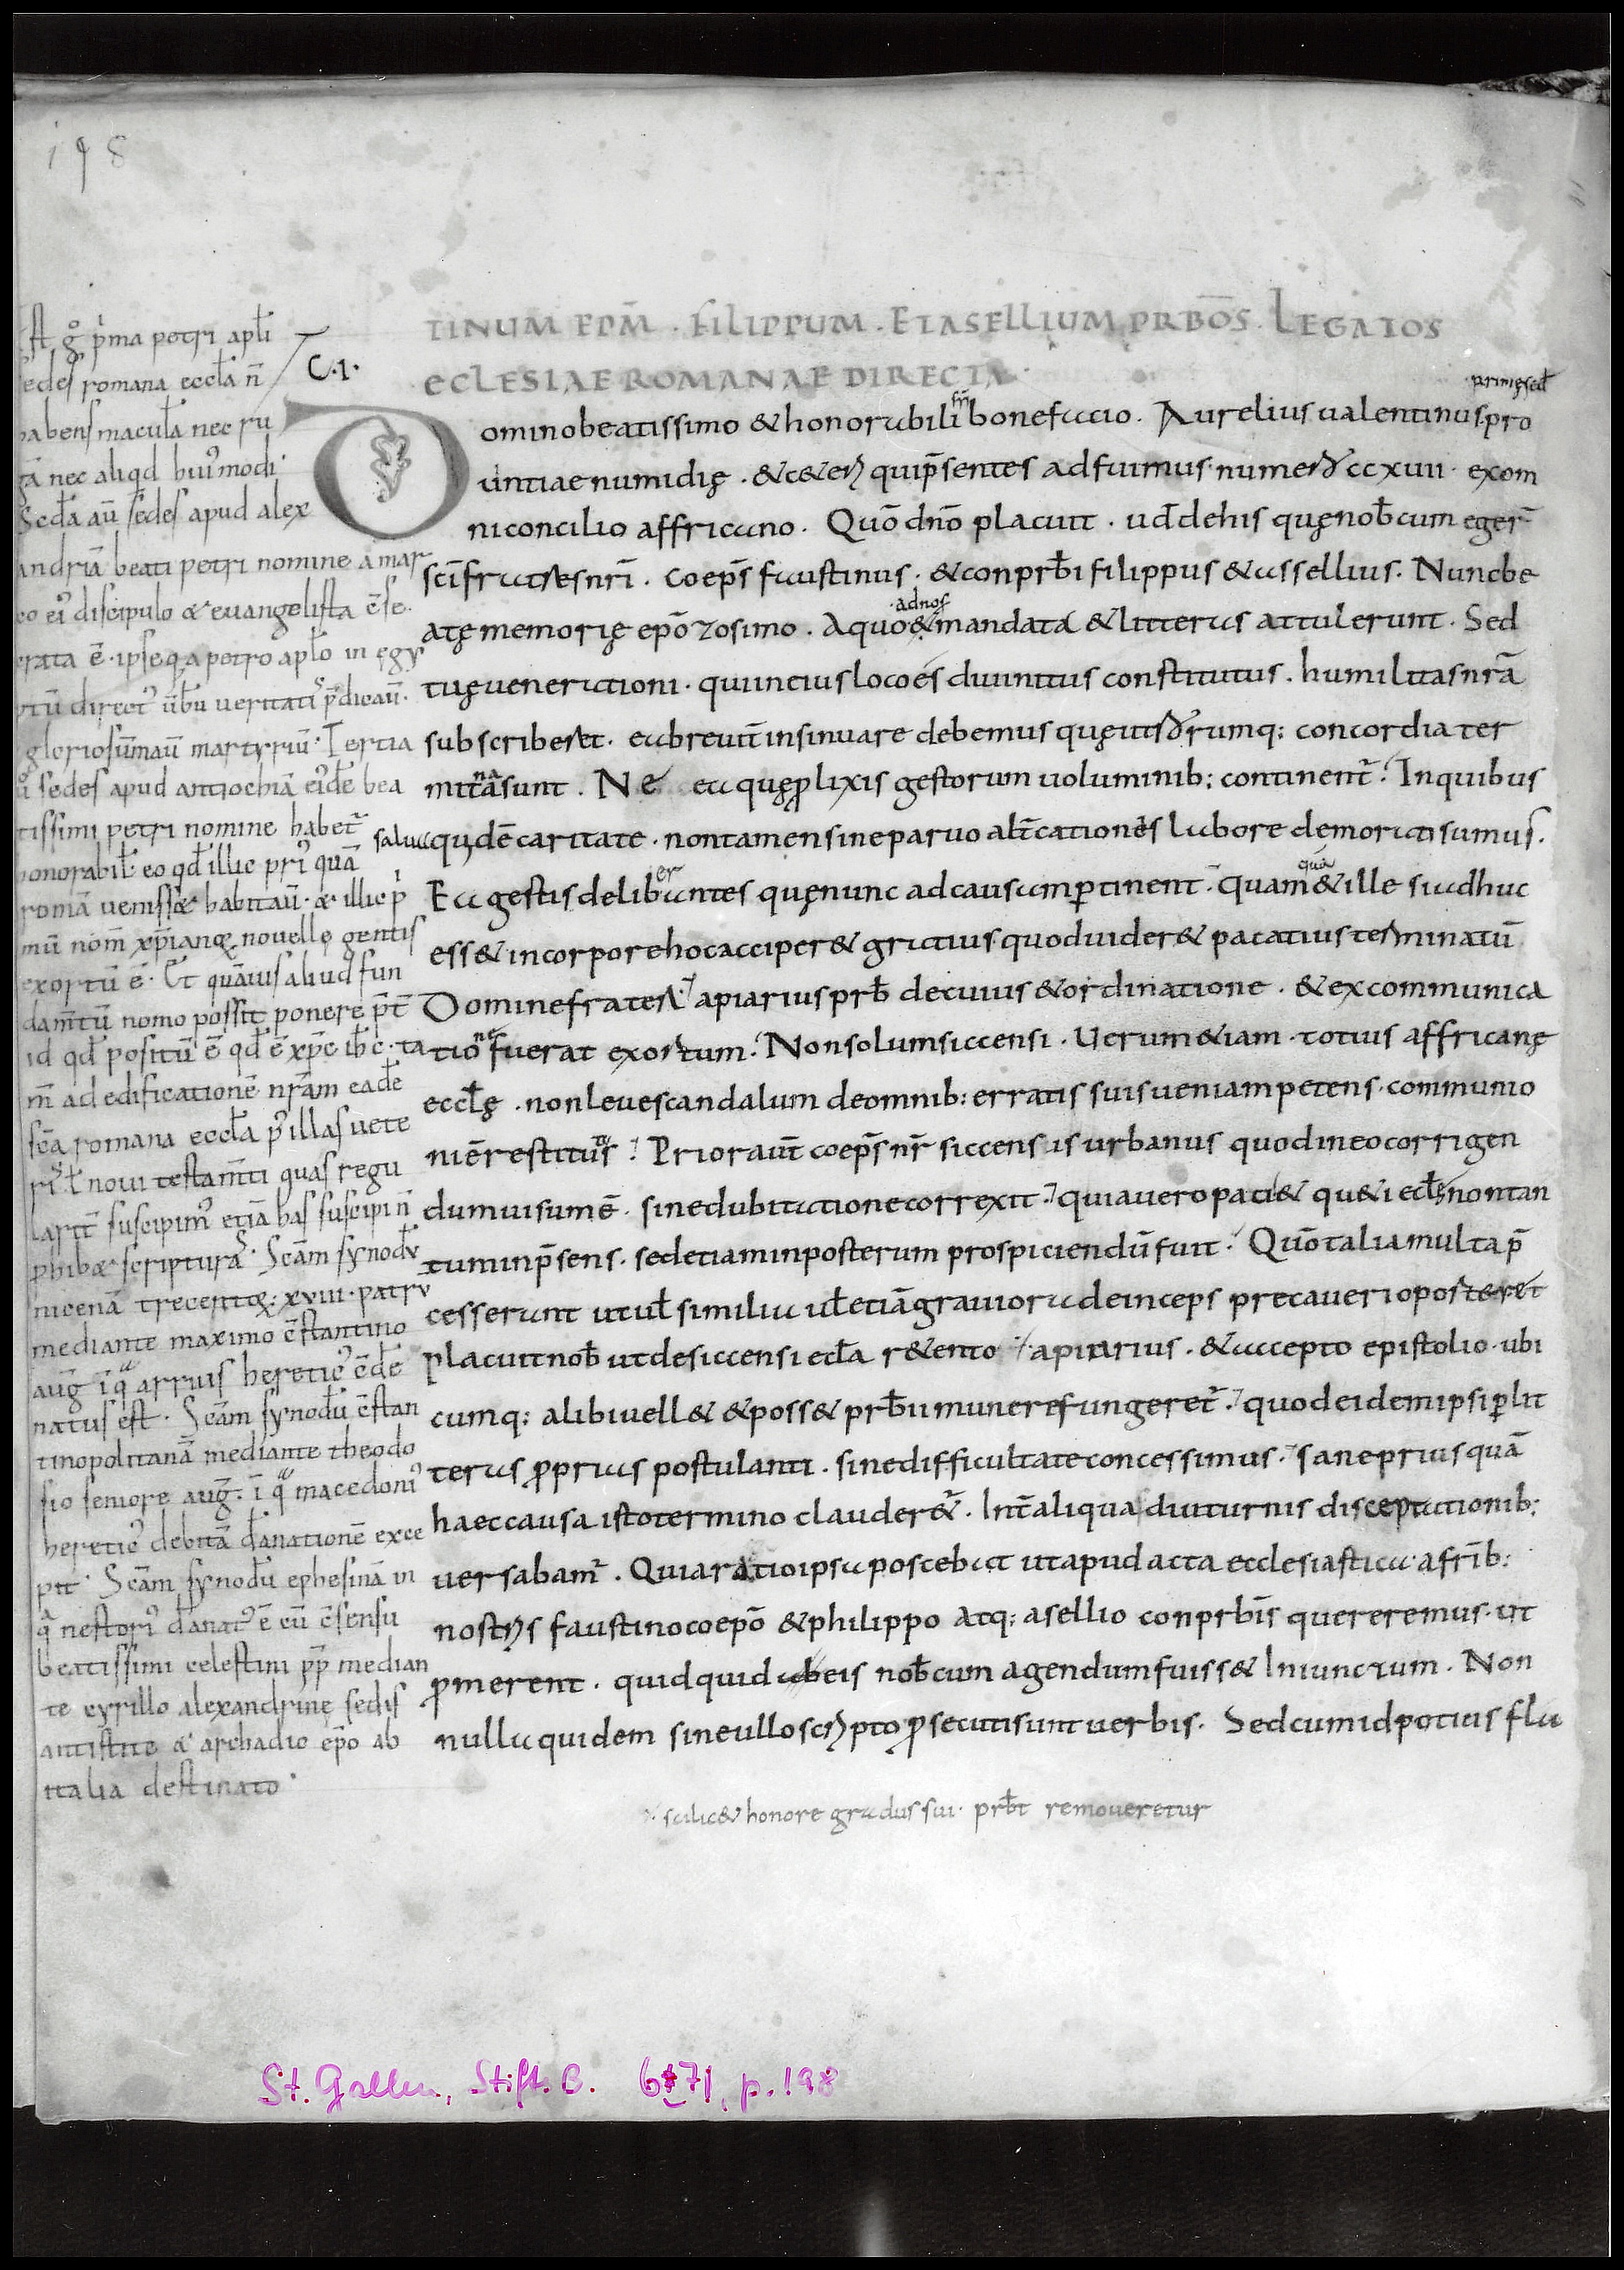 198
TINUM EPM̄ · FILIPPUM · ET ASELLIUM PRBOS̄ · LEGATOS
ECLESIAE ROMANAE DIRECTA ·
C · I ·
primę sed̄
Domino beatissimo & honorabili fr̄i bonefacio · Aurelius ualentinus pro
uintiae numidię · & ceteri qui p̄sentes adfuimus numero ccxuii · ex om
ni concilio affricano · Quō dn̄o placuit · ud̄ de his quę nob̄ cum eger̄
sc̄i fratres nr̄i · coep̄s faustinus · & conprb̄i filippus & assellius · Non cbe
atę memorię ep̄o zosimo · A quo & ad nos mandata & litteras attulerunt · Sed
tuę uenerationi · qui in eius loco es diuinitus constitutus · humilitas nr̄a
subscriberet · ea breuit̄ insinuare debemus quę utrorumq; concordia ter
minata sunt · Ne ea quę p̄lixis gestorum uoluminib; continent̄ · In quibus
salua
quidē caritate · non tamen sine paruo alt̄cationes labore demorati sumus ·
Ea gestis deliberantes quę nunc ad causam p̄tinent · quam quā & ille si adhuc
ess& in corpore hoc acciper& gratius quod uider& pacatius terminatū
Domine frater · apiarius prb̄ de cuius & ordinatione · & excommunica
tione fuerat exortum · Non solum siccensi · Uerum & iam · totius affricanę
eccl̄ę · non leue scandalum de omnib; erratis suis ueniam petens · communio
ni ē restitutus · Prior aut̄ coep̄s nr̄ siccensis urbanus quod in eo corrigen
dum uisum ē · sine dubitatione correxit · quia uero paci & qu&i ecl̄ę non tan
tum in p̄sens · sed etiam in posterum prospiciendū fuit · Quō talia multa p̄
cesserunt ut ul̄ similia ul̄ etiā grauiora deinceps precaueri oporteret
placuit nob̄ ut de siccensi ecl̄a retento apiarius · & accepto epistolio · ubi
cumq; alibi uell& & poss& prb̄ii munere fungeret̄ · quod eidem ipsi p̄ lit
teras p̄prias postulanti · sine difficultate concessimus · Sane prius quā
haec causa isto termino clauder&̄ · Int̄ aliqua diuturnis disceptationib;
uersabam̄ · Quia ratio ipsa poscebat ut apud acta ecclesiastica · a fr̄ib;
nostris faustino coep̄o & philippo atq; asellio conprb̄is quereremus · ut
p̄merent · quid quid ab eis nob̄ cum agendum fuiss& Iniunctum · Non
nulla quidem sine ullo scripto p̄secuti sunt uerbis · Sed cum id potius fla
scilic& honore gradus sui · prb̄t remoueretur
Ē g̊ p̄ma petri apl̄i
sedes romana eccl̄a n̄
habens macul̄a nec ru
gā nec aliqd̄ huiꝰmodi ·
Sed̄a aū sedes apud alex
andriā beati petri nomine a mar
co eiꝰ discipulo & euangelista c̄se
crata ē · ipseq; a petro apl̄o in egy
ptū directꝰ ūbū ueritatis p̄dicau ·
gloriosūmaū martyriū · Tertia
ů sedes apud antiochiā eiꝰdē bea
tissimi petri nomine habet̄
honorabil̄ · eo qd̄ illic priꝰ quā
romā uenisset habitau · & illic p̄
mū nom̄ xp̄ianę nouellę gentis
exortū ē · Et quāuis aliud fun
dam̄tū nemo possit ponere p̄t̄
id qd̄ positū ē qd̄ ē xp̄c ih̄c · ta
m̄ ad edificationē nr̄am eadē
sc̄a romana eccl̄a p̄ illas uete
ris l̄ noui testam̄ti quas regu
larit̄ suscipimꝰ etiā has suscipi n̄
phib& scripturas · Sc̄am synodū
nicenā trecentoꝝ · xviii · patrū
mediante maximo c̄stantino
auḡ · ī q̄ arrius hereticꝰ c̄dē
natus est · Sc̄am synodū c̄stan
tinopolitanā mediante theodo
sio seniore auḡ · ī q̄ macedoniꝰ
hereticꝰ debitā dānationē exce
pit · Sc̄am synodū ephesinā in
q̄ nestoriꝰ dānatꝰ ē cū c̄sensu
beatissimi celestini pp̄ median
te cyrillo alexandrinę sedis
antistite & archadio ep̄o ab
italia destinato ·
St. Gallen, Stift. B. 671, p. 198